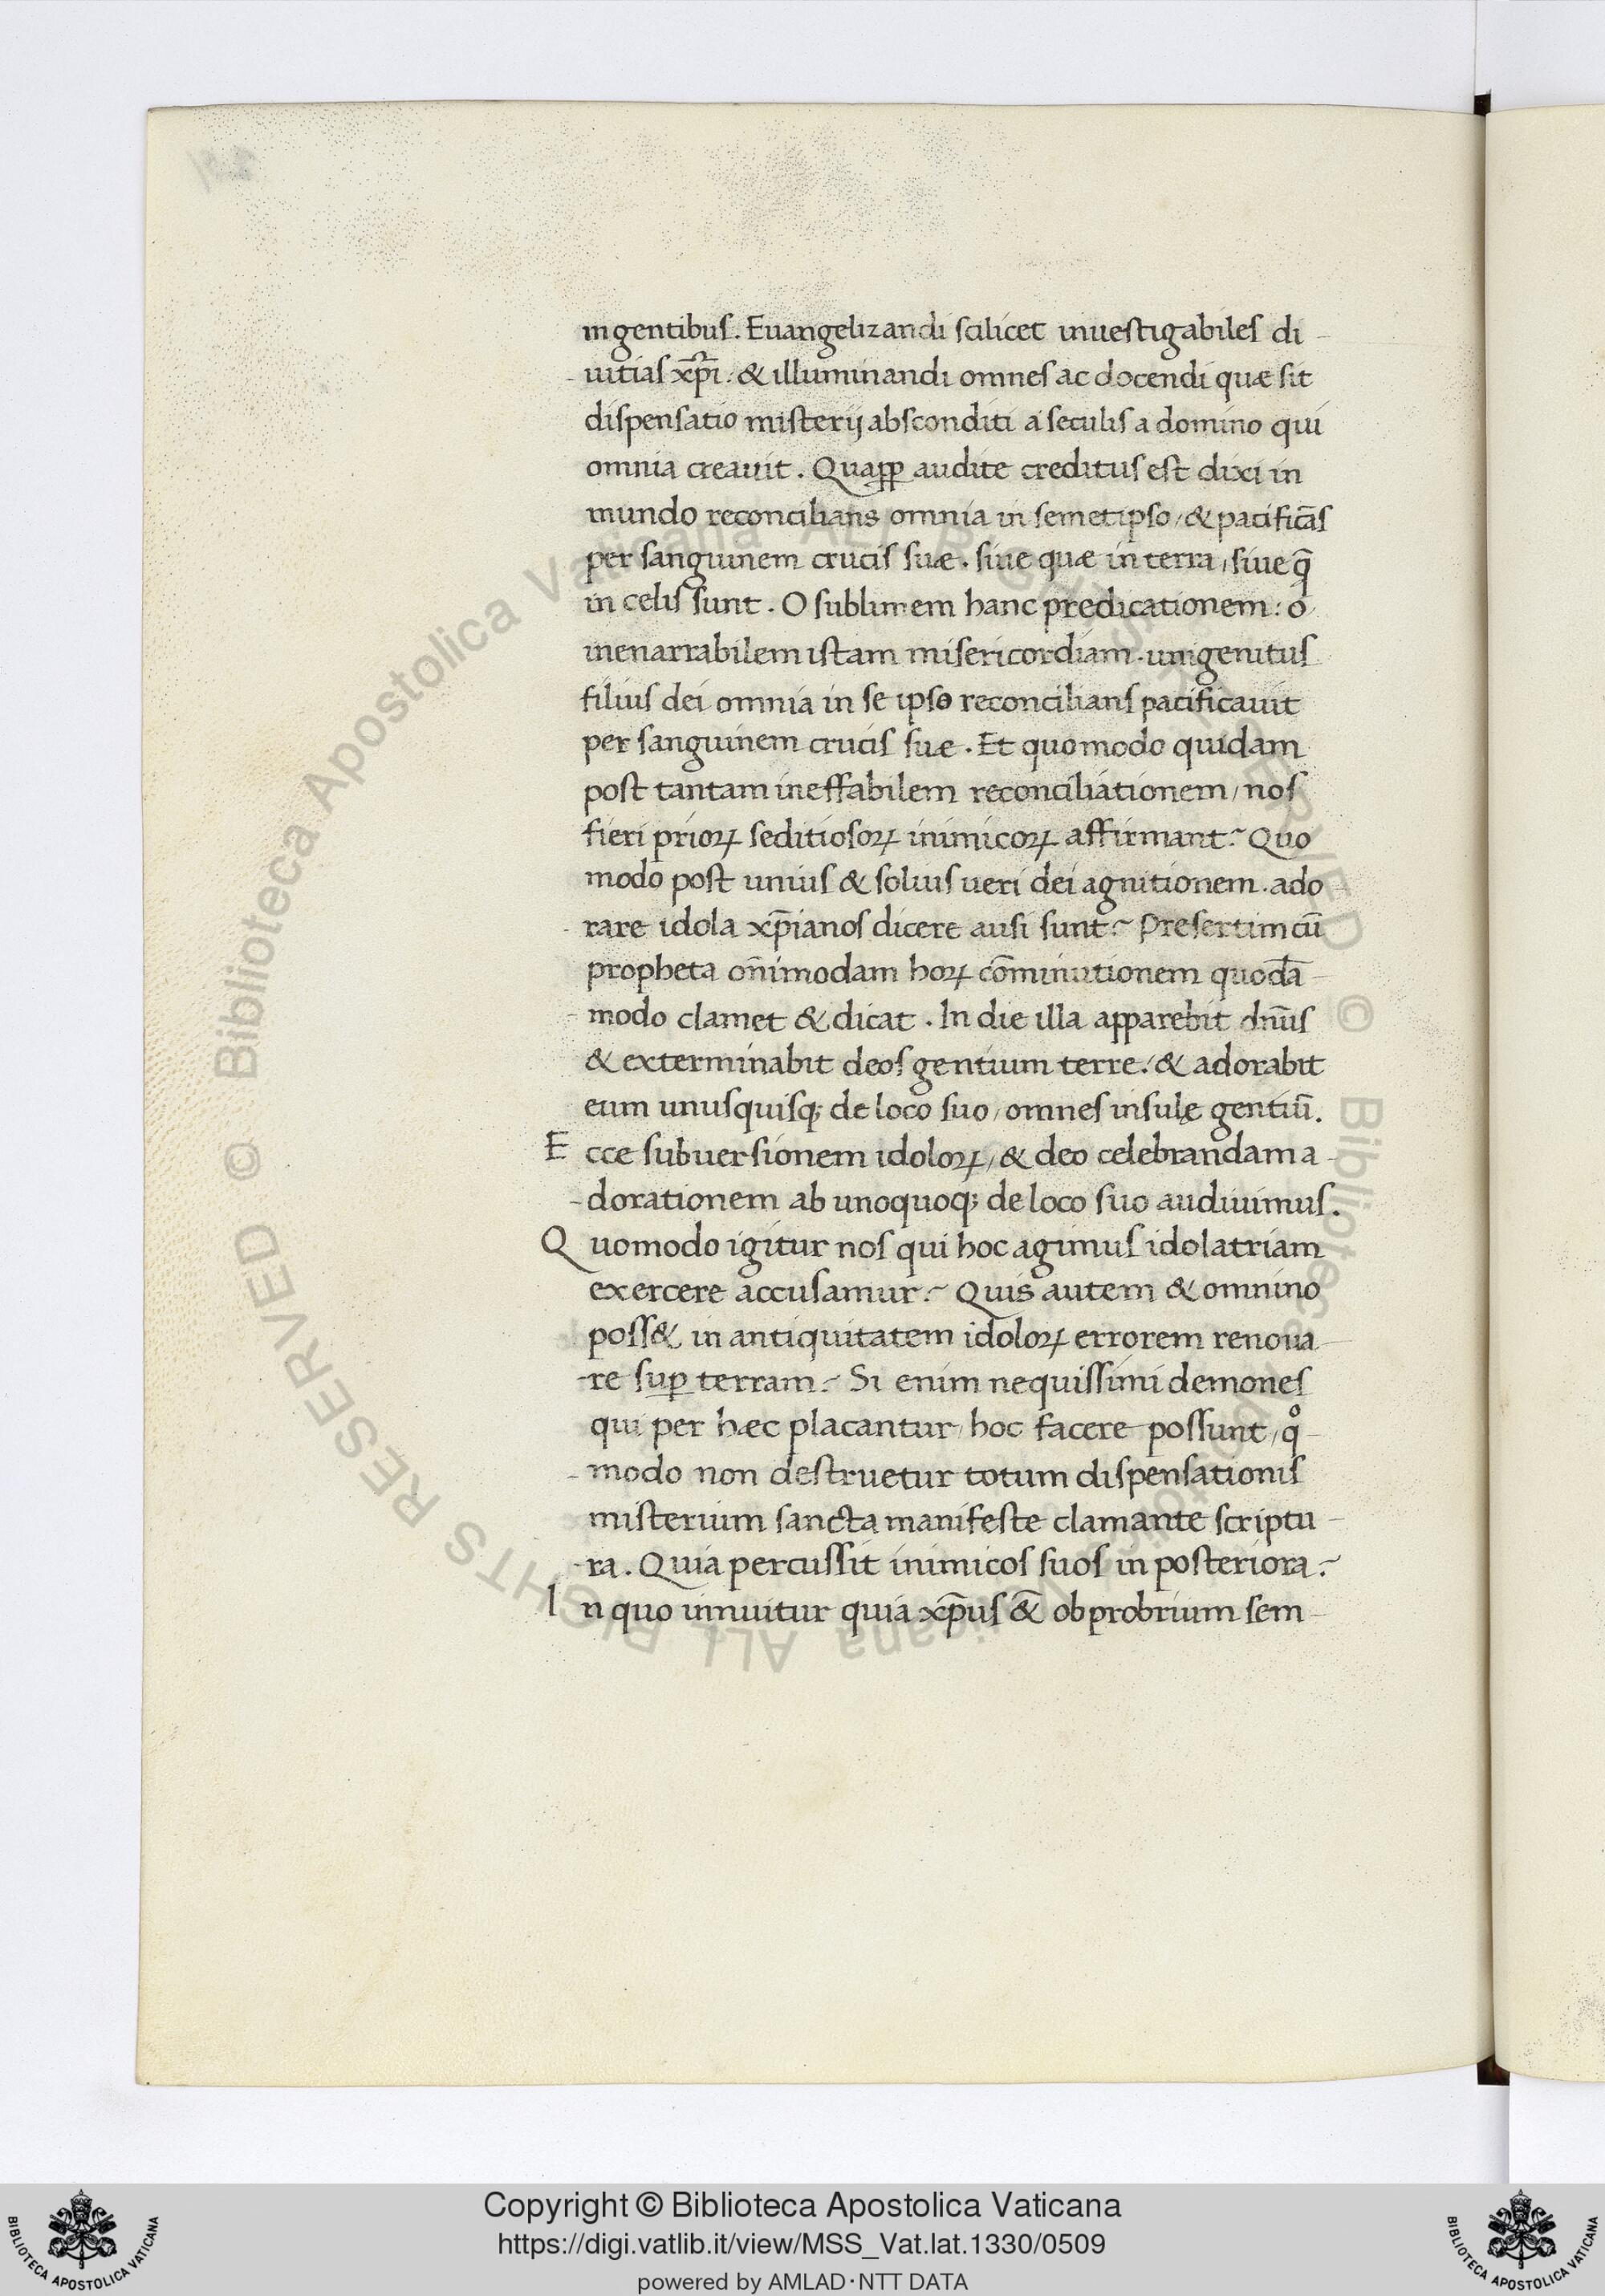 in gentibus. Euangelizandi scilicet inuestigabiles di-
-uitias xp̄i: & illuminandi omnes ac docendi quæ sit
dispensatio misterij absconditi a seculis a domino qui
omnia creauit. Quaꝓꝑ audite creditus est dixi in
mundo reconcilians omnia in semetipso/ & pacificās
per sanguinem crucis suæ. siue quæ in terra, siue q̄
in celis sunt. O sublimem hanc predicationem: o
inenarrabilem istam misericordiam. unigenitus
filius dei omnia in se ipso reconcilians pacificauit
per sanguinem crucis suæ. Et quomodo quidam
post tantam ineffabilem reconciliationem, nos
fieri prioꝝ seditiosoꝝ inimicoꝝ affirmant? Quo
modo post unius & solius ueri dei agnitionem. ado
-rare idola xp̄ianos dicere ausi sunt? Presertim cū
propheta om̄imodam hoꝝ com̄inutionem quodā-
-modo clamet & dicat. In die illa apparebit dn̄us
& exterminabit deos gentium terre. & adorabit
eum unusquisq; de loco suo, omnes insulę gentiū.
Ecce subuersionem idoloꝝ, & deo celebrandam a-
-dorationem ab unoquoq; de loco suo audiuimus.
Quomodo igitur nos qui hoc agimus idolatriam
exercere accusamur? Quis autem & omnino
poss& in antiquitatem idoloꝝ errorem renoua-
-re suꝑ terram? Si enim nequissimi demones
qui per hæc placantur, hoc facere possunt, qͦ-
-modo non destruetur totum dispensationis
misterium sancta manifeste clamante scriptu-
-ra. Quia percussit inimicos suos in posteriora?
In quo innuitur quia xp̄us &̄ obprobrium sem-
Copyright © Biblioteca Apostolica Vaticana
https://digi.vatlib.it/view/MSS_Vat.lat.1330/0509
powered by AMLAD·NTT DATA
BIBLIOTECA APOSTOLICA VATICANA
BIBLIOTECA APOSTOLICA VATICANA
© Biblioteca Apostolica Vaticana ALL RIGHTS RESERVED © Biblioteca Apostolica Vaticana ALL RIGHTS RESERVED